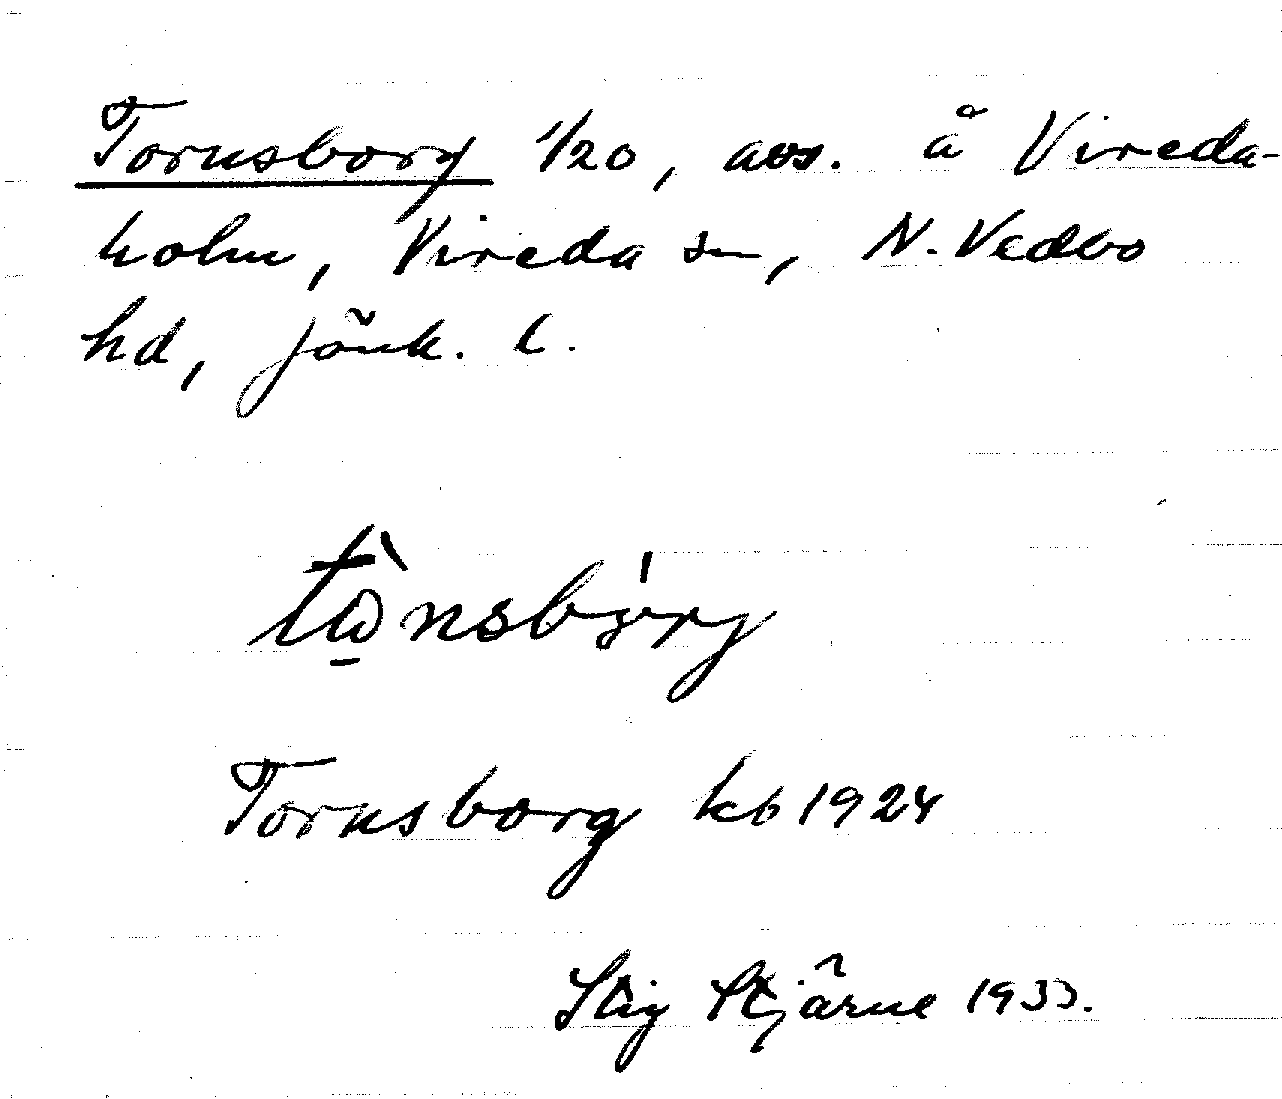 Tornsborg 1/20, avs. å Vireda-
holm, Vireda sn, N. Vedbo
hd, Jönk. l.
Tornsborg kb 1924
Stig Stjärne 1933.